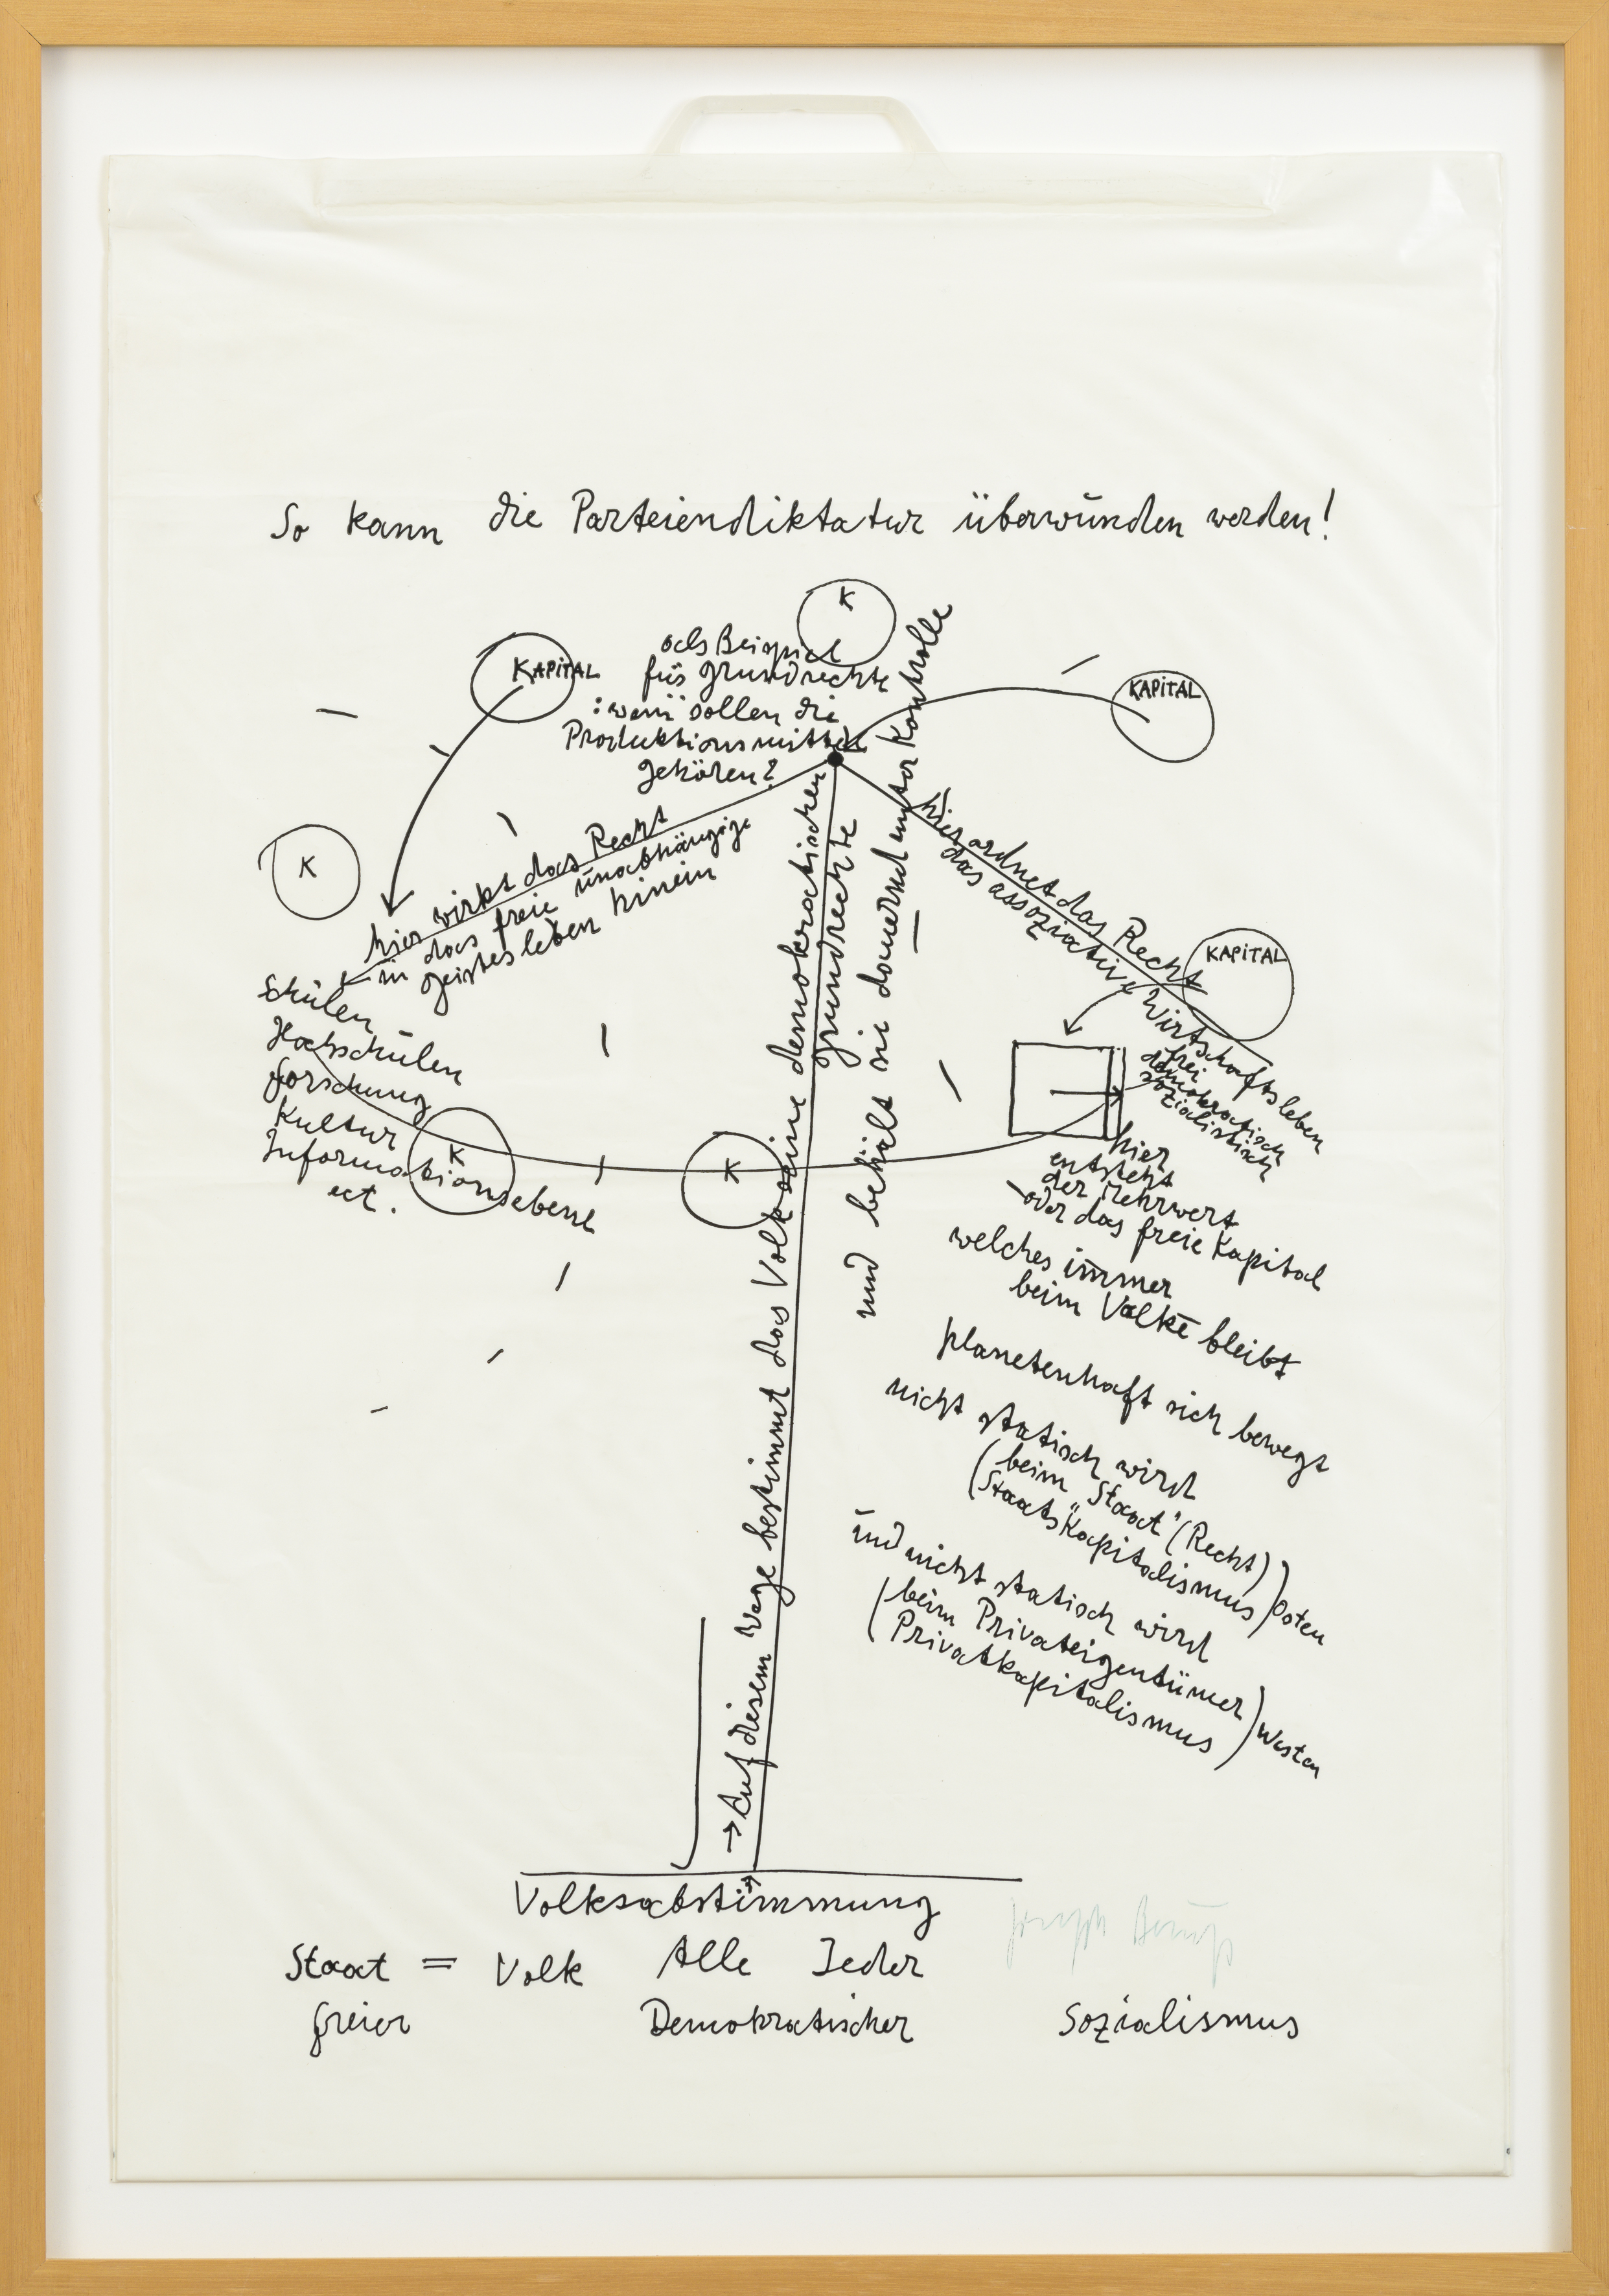 So kann die Parteiendiktatur überwunden werden!
K
KAPITAL
als Beispiel
für Grundrechte
: wem sollen die
Produktionsmittel
gehören?
KAPITAL
K
hier wirkt das Recht
in das freie unabhängige
Geistesleben hinein
Schulen
Hochschulen
Forschung
Kultur
Informationsebene
ect.
K
K
→ Auf diesem Wege bestimmt das Volk seine demokratischen
Grundrechte
und behält sie dauernd unter Kontrolle
hier ordnet das Recht
das assoziative Wirtschaftsleben
KAPITAL
frei
demokratisch
sozialistisch
hier
entsteht
der Mehrwert
oder das freie Kapital
welches immer
beim Volke bleibt
planetenhaft sich bewegt
nicht statisch wird
(beim "Staat" (Recht))
(Staatskapitalismus) Osten
und nicht statisch wird
(beim Privateigentümer)
(Privatkapitalismus) Westen
Volksabstimmung
Joseph Beuys
Staat = Volk Alle Jeder
freier Demokratischer Sozialismus